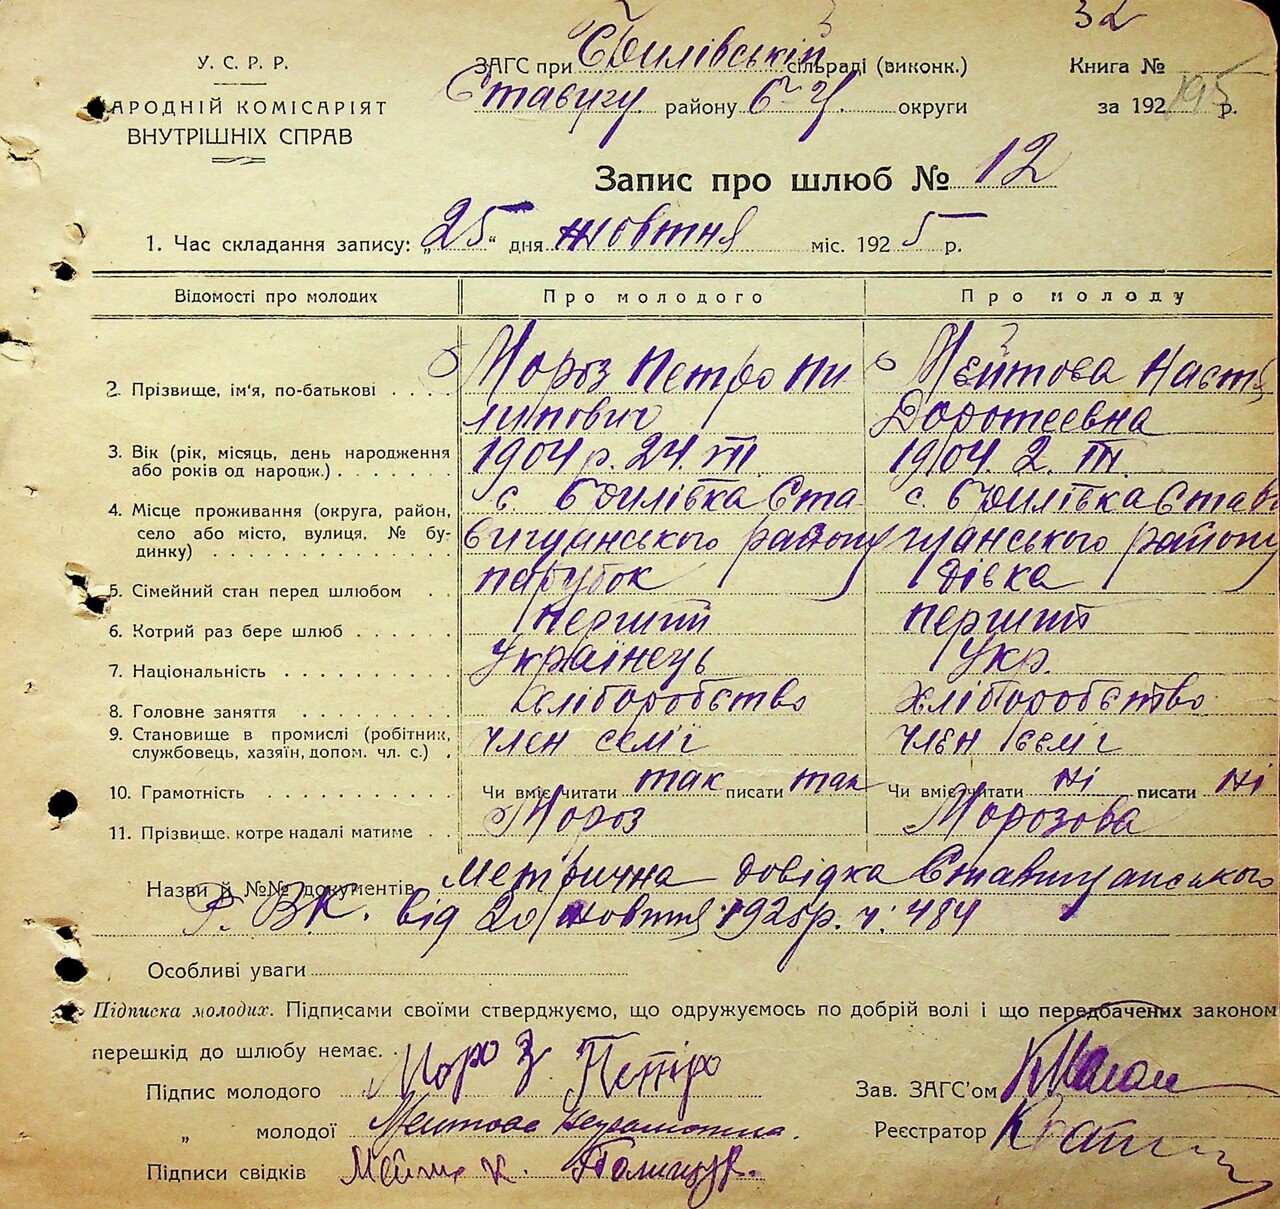 32
У. С. Р. Р.
НАРОДНІЙ КОМІСАРІЯТ
ВНУТРІШНІХ СПРАВ
ЗАГС при Єбилівській сільраді (виконк.)
Ставищу району Б-Ц. округи
Книга №
за 192 195 р.
Запис про шлюб № 12
1. Час складання запису: „25“ дня жовтня міс. 1925 р.
Відомості про молодих
Про молодого
Про молоду
2. Прізвище, ім'я, по-батькові . . . .
Мороз Петро Пи
липович
Мейтова Настя
Доротеевна
3. Вік (рік, місяць, день народження
або років од нарοдж.) . . . . . . . .
1904 р. 24. III
1904. 2. III
4. Місце проживання (округа, район,
село або місто, вулиця, № бу-
динку) . . . . . . . . . . . . . .
с. Єдилівка Ста-
вищанського району
с. Єдилівка Стави
щанського району
5. Сімейний стан перед шлюбом . .
парубок
дівка
6. Котрий раз бере шлюб . . . . . .
перший
перший
7. Національність . . . . . . . . . .
українець
Укр.
8. Головне заняття . . . . . . . . .
хліборобство
хліборобство
9. Становище в промислі (робітник,
службовець, хазяїн, допом. чл. с.) .
член семі
член семі
10. Грамотність . . . . . . . . . . .
Чи вміє читати так писати так
Чи вміє читати ні писати ні
11. Прізвище, котре надалі матиме . .
Мороз
Морозова
Назви й №№ документів Метрична довідка Ставищанського
Р. В К. від 20 жовтня 1925 р. ч. 484
Особливі уваги
Підписка молодих. Підписами своїми стверджуємо, що одружуємось по добрій волі і що передбачених законом
перешкід до шлюбу немає.
Підпис молодого Мороз Петро
Зав. ЗАГС'ом
„ молодої Мейтова неграмотна.
Реєстратор
Підписи свідків